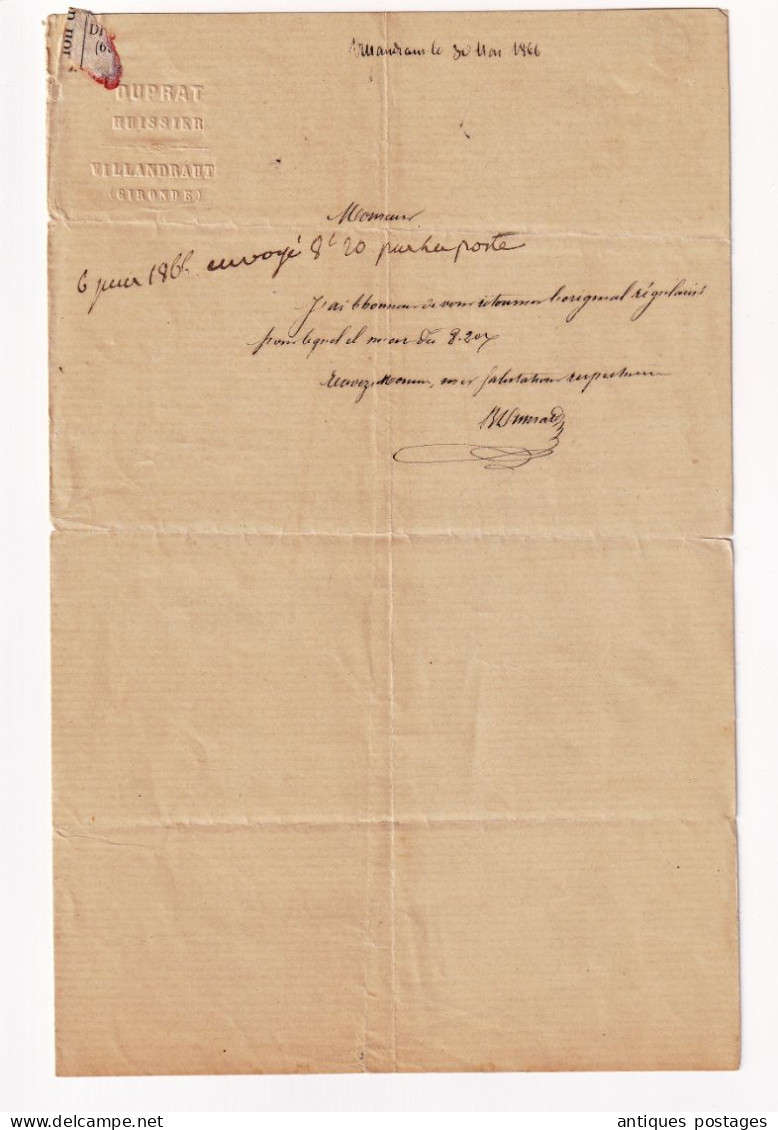 DUPRAT
HUISSIER
VILLANDRAUT
(GIRONDE)
Villandraut le 30 Mai 1866
Monsieur
6 juin 1866 envoyé 8f 20 par la poste
J'ai l'honneur de vous retourner l'original régularisé
pour lequel il m'est dû 8.20
Recevez, Monsieur, mes salutations respectueuses
antiques postages